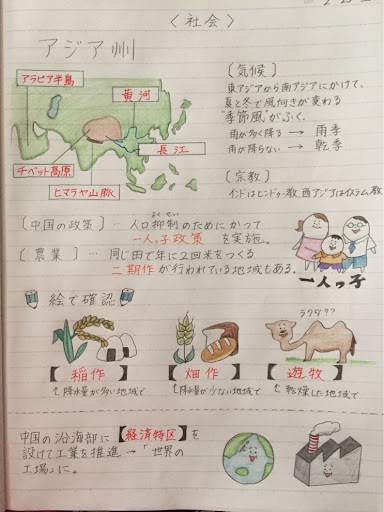 〈社会〉
アジア州
アラビア半島
黄河
長江
チベット高原
ヒマラヤ山脈
〔気候〕
東アジアから南アジアにかけて、
夏と冬で風向きが変わる
"季節風"がふく。
雨が多く降る → 雨季
雨が降らない → 乾季
〔宗教〕
インドはヒンドゥー教、西アジアはイスラム教
〔中国の政策〕… 人口抑制のためにかつて
よくせい
一人っ子政策 を実施。
〔農業〕… 同じ田で年に2回米をつくる
二期作が行われている地域もある。
一人っ子
絵で確認
ラクダ??
【稲作】
↑降水量が多い地域で
【畑作】
↑降水量が少ない地域で
【遊牧】
↑乾燥した地域で
中国の沿海部に【経済特区】を
設けて工業を推進→「世界の
工場」に。